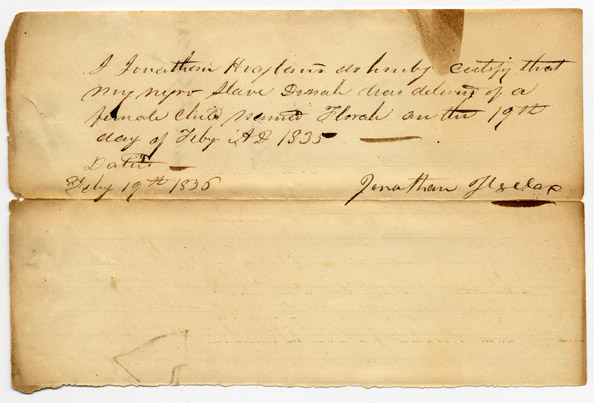 I Jonathan Hoagland do hereby certify that
my negro Slave Dinah was delivered of a
female child named Florah on the 19th
day of Feby AD 1835
Dated
Feby 19th 1836
Jonathan